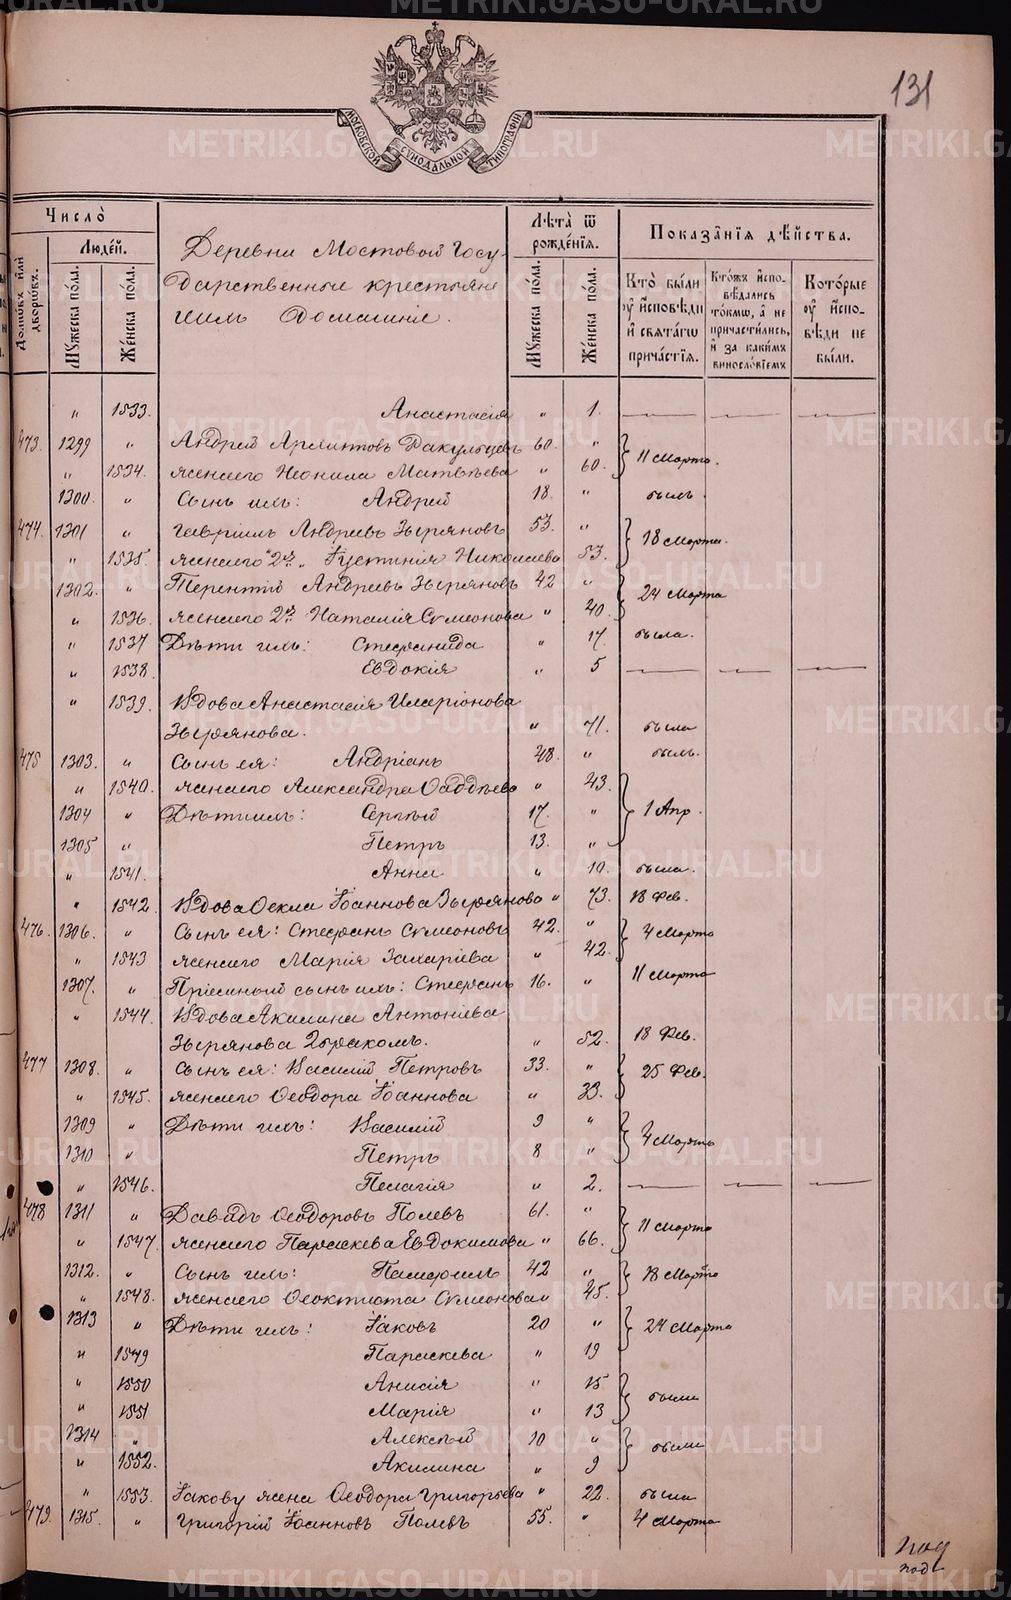 131
МОСКОВСКОЙ СУНОДАЛЬНОЙ ТИПОГРАФІИ
Число̀
Людей.
Домѡвъ или дворѡвъ.
Мꙋжеска пола.
Женска пола.
Деревни Мостовой Госу-
дарственные крестьяне
и ихъ домашніе.
Лѣта ѿ рожденїѧ.
Мꙋжеска пола.
Женска пола.
Показанїѧ дѣйства.
Кто были оу исповѣди и свѧтагѡ причастїѧ.
Ктожъ исповѣдались токмѡ, а не причастились, и за какимъ винословїемъ
Которые оу исповѣди не были.
" 1533. Анастасія " 1. — — —
473. 1299 " Андрей Армянтовъ Ракульцевъ 60. " } 11 Марта.
" 1534. жена его Неонила Матвѣева " 60.
1300. " Сынъ ихъ: Андрей 18. " былъ.
474. 1301 " Гавріилъ Андреевъ Зыряновъ 53. " } 18 Марта.
" 1535. жена его 2ч. Іустинія Николаева 53.
1302. " Терентій Андреевъ Зыряновъ 42 " } 24 Марта
" 1536. жена его 2ч. Наталія Сумеонова " 40.
" 1537 Дѣти ихъ: Стефанида " 17. была.
" 1538. Евдокія " 5 — — —
" 1539. Вдова Анастасія Иларіонова
Зырянова. " 71. была
475 1303. " Сынъ ея: Андріанъ 48. " былъ.
" 1540. жена его Александра Ѳаддѣева " 43. } 1 Апр.
1304 " Дѣти ихъ: Сергѣй 17. "
1305 " Петръ 13. "
" 1541. Анна " 10. была.
" 1542. Вдова Ѳекла Іоаннова Зырянова " 73. 18 Фев.
476. 1306. " Сынъ ея: Стефанъ Сумеоновъ 42. " } 4 Марта
" 1543 жена его Марія Захаріева 42.
1307. " Пріемный сынъ ихъ: Стефанъ 16. " 11 Марта
" 1544. Вдова Акилина Антоніева
Зырянова 2 бракомъ. " 52. 18 Фев.
477 1308. " Сынъ ея: Василій Петровъ 33. " } 25 Фев.
" 1545. жена его Ѳеодора Іоаннова " 33.
1309 " Дѣти ихъ: Василій 9 " } 4 Марта
1310 " Петръ 8 "
" 1546. Пелагія " 2. — — —
478 1311 " Давидъ Ѳеодоровъ Полевъ 61. " } 11 Марта
" 1547. жена его Параскева Евдокимова " 66.
1312. " Сынъ ихъ: Памфилъ 42 " } 18 Марта
" 1548. жена его Ѳеоктиста Сумеонова " 45.
1313 " Дѣти ихъ: Іаковъ 20 " } 24 Марта
" 1549 Параскева " 19
" 1550 Анисія " 15 } были
" 1551 Марія " 13
1314 " Алексѣй 10 " } были
" 1552. Акилина " 9
" 1553. Іакову жена Ѳеодора Григорьева " 22. была
479. 1315. " Григорій Іоанновъ Полевъ 55. " 4 Марта
METRIKI.GASO-URAL.RU